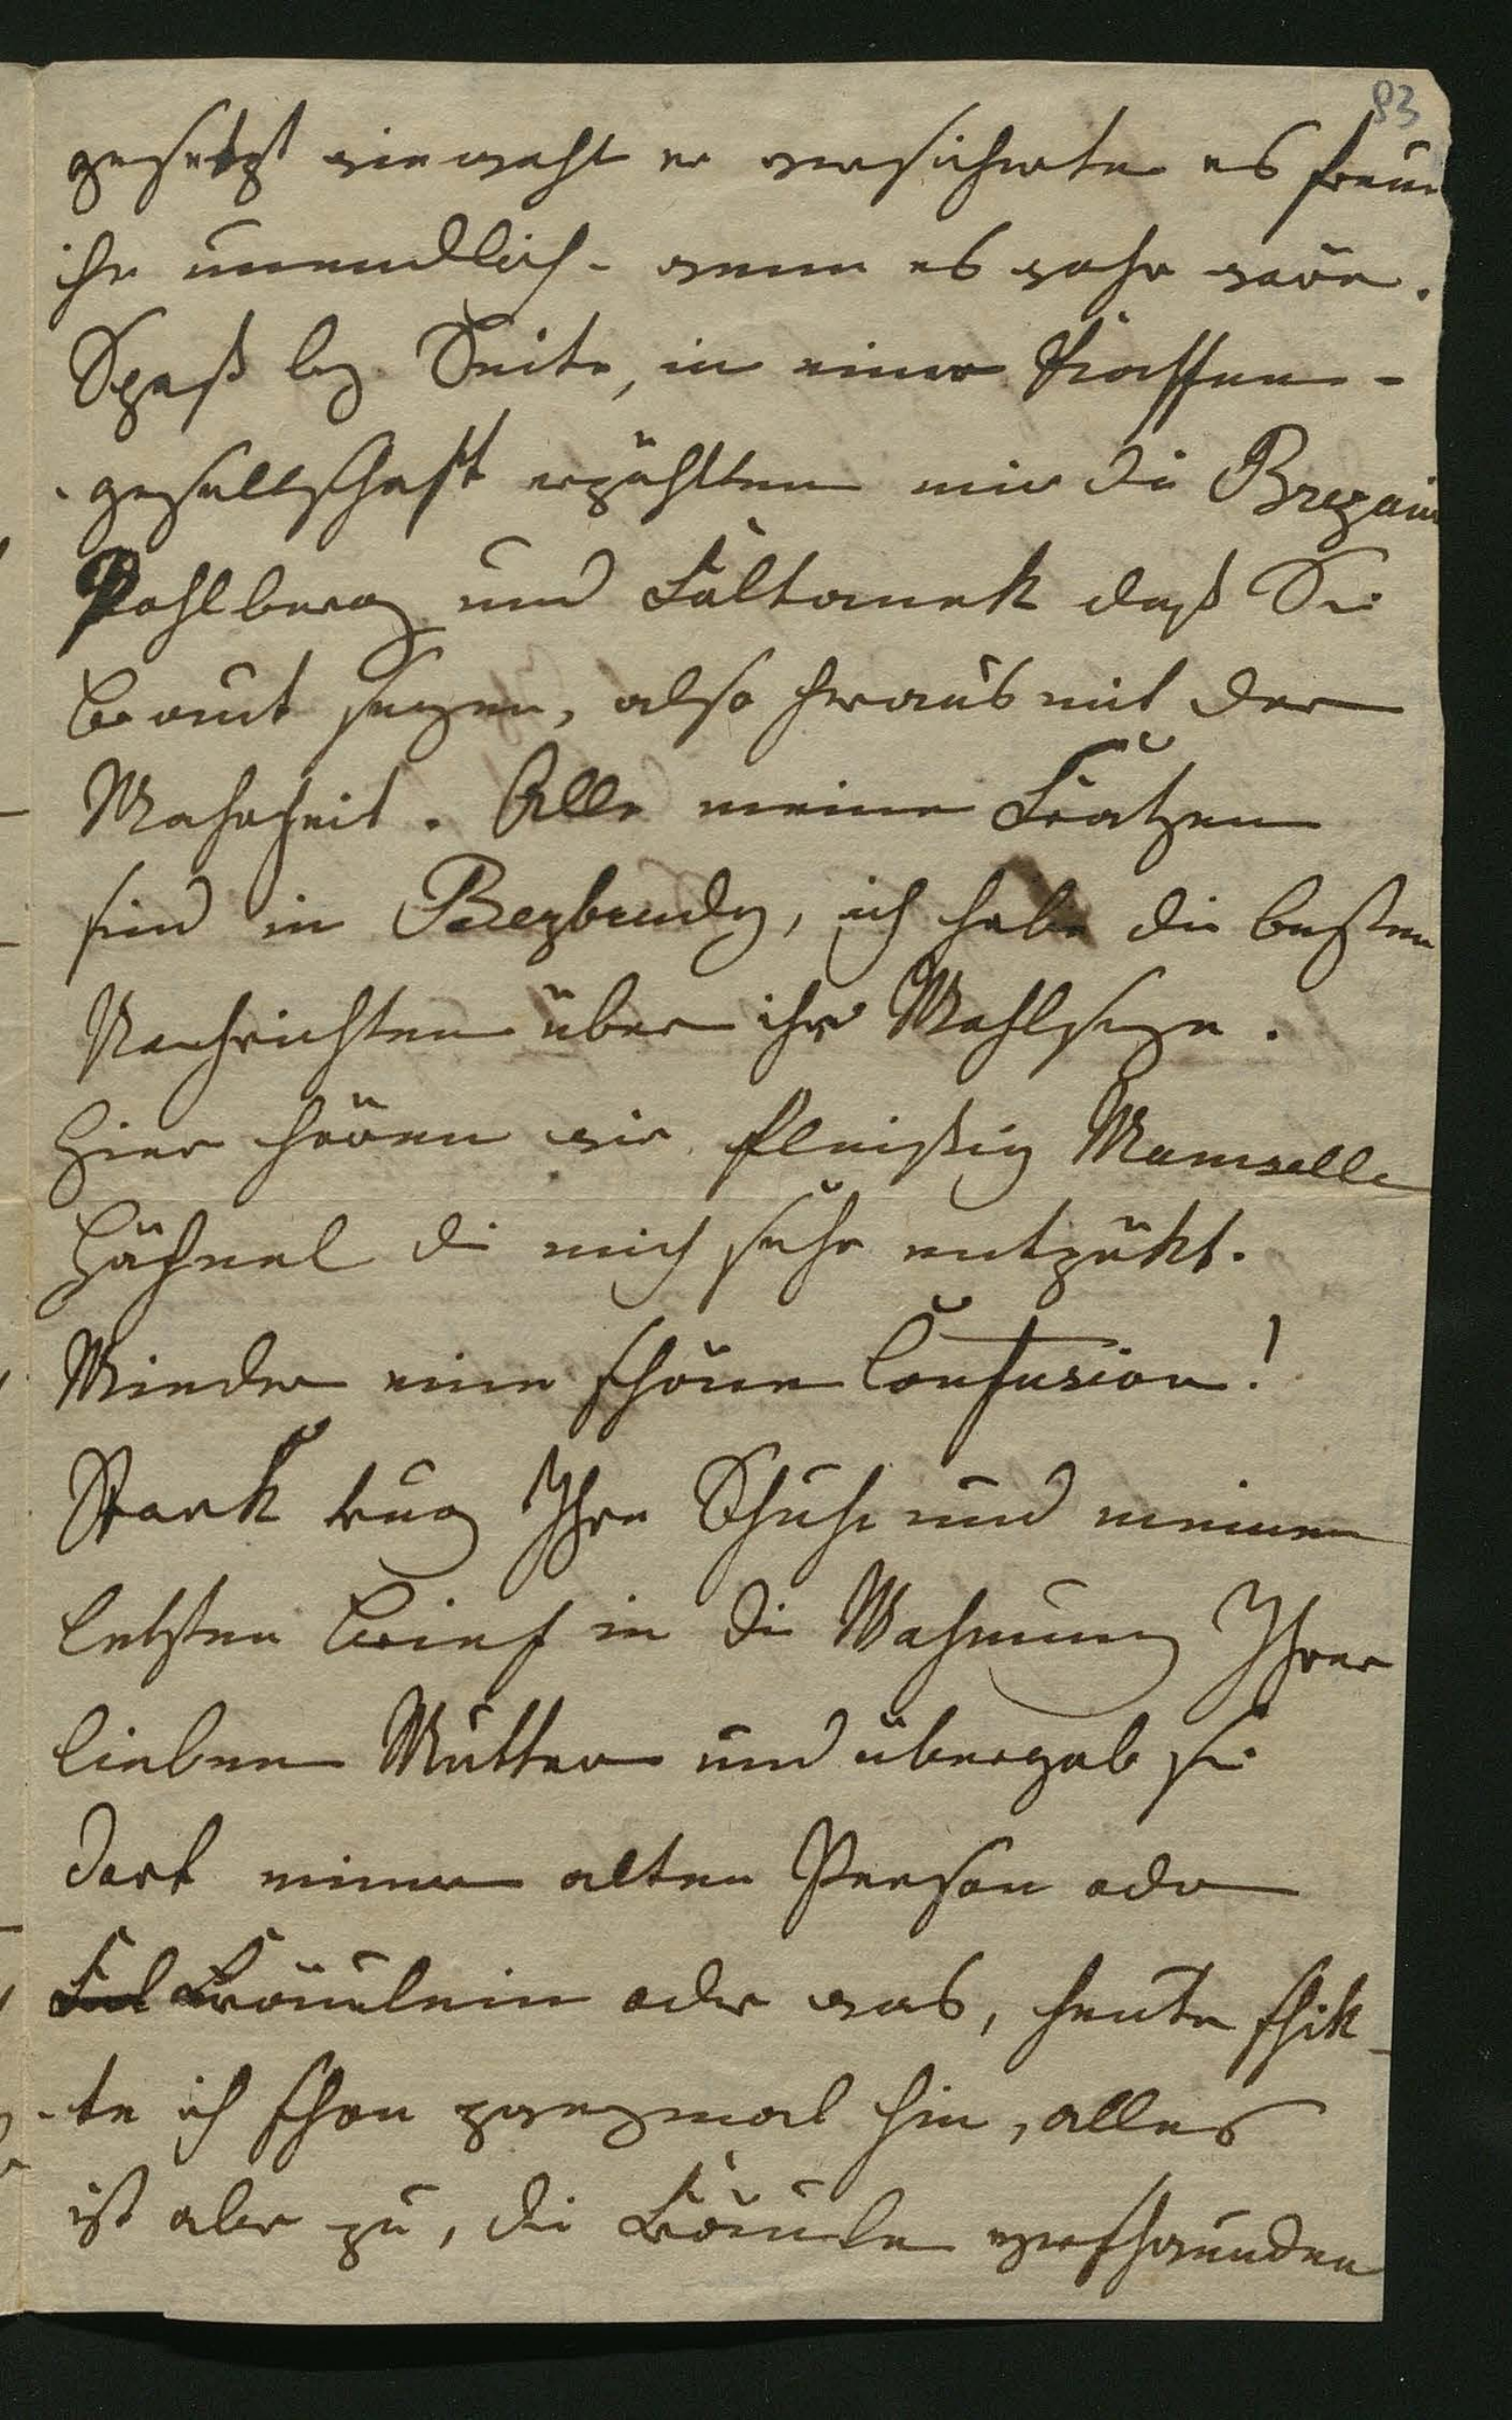 83
gesetzt wiewohl er versicherte es freue
ihn unendlich - wenn es wahr wäre.
Spaß bey Seite, in einer Kaffee-
-gesellschaft erzählten mir die
Pohlberg und Faltanek daß Sie
Braut seyen, also heraus mit der
Wahrheit. Alle meine Fratzen
sind in Bezbrudy, ich habe die besten
Nachrichten über ihr Wohlseyn.
Hier hören wir fleißig Mamselle
Hähnel die mich sehr entzükt.
Wieder eine schöne Confusion!
Stark trug Ihre Schuhe und meinen
letzten Brief in die Wohnung Ihrer
lieben Mutter und übergab sie
dort einer alten Person oder
Fräulein oder was, heute schik-
-te ich schon zweymal hin, alles
ist aber zu, die Fräule verschwunden